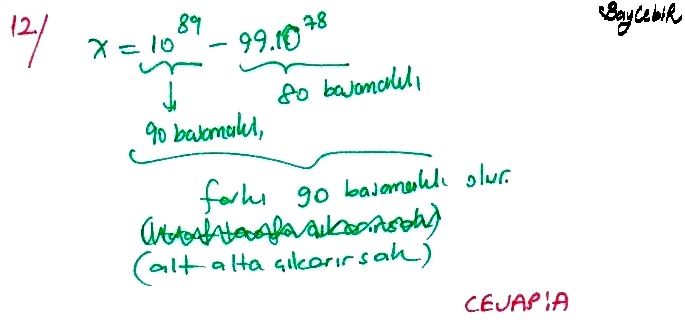 12./
BayCebiR
x = 10^89 - 99.10^78
80 basamaklı
90 basamaklı
farkı 90 basamaklı olur.
(alt alta çıkarırsak)
CEVAP: A